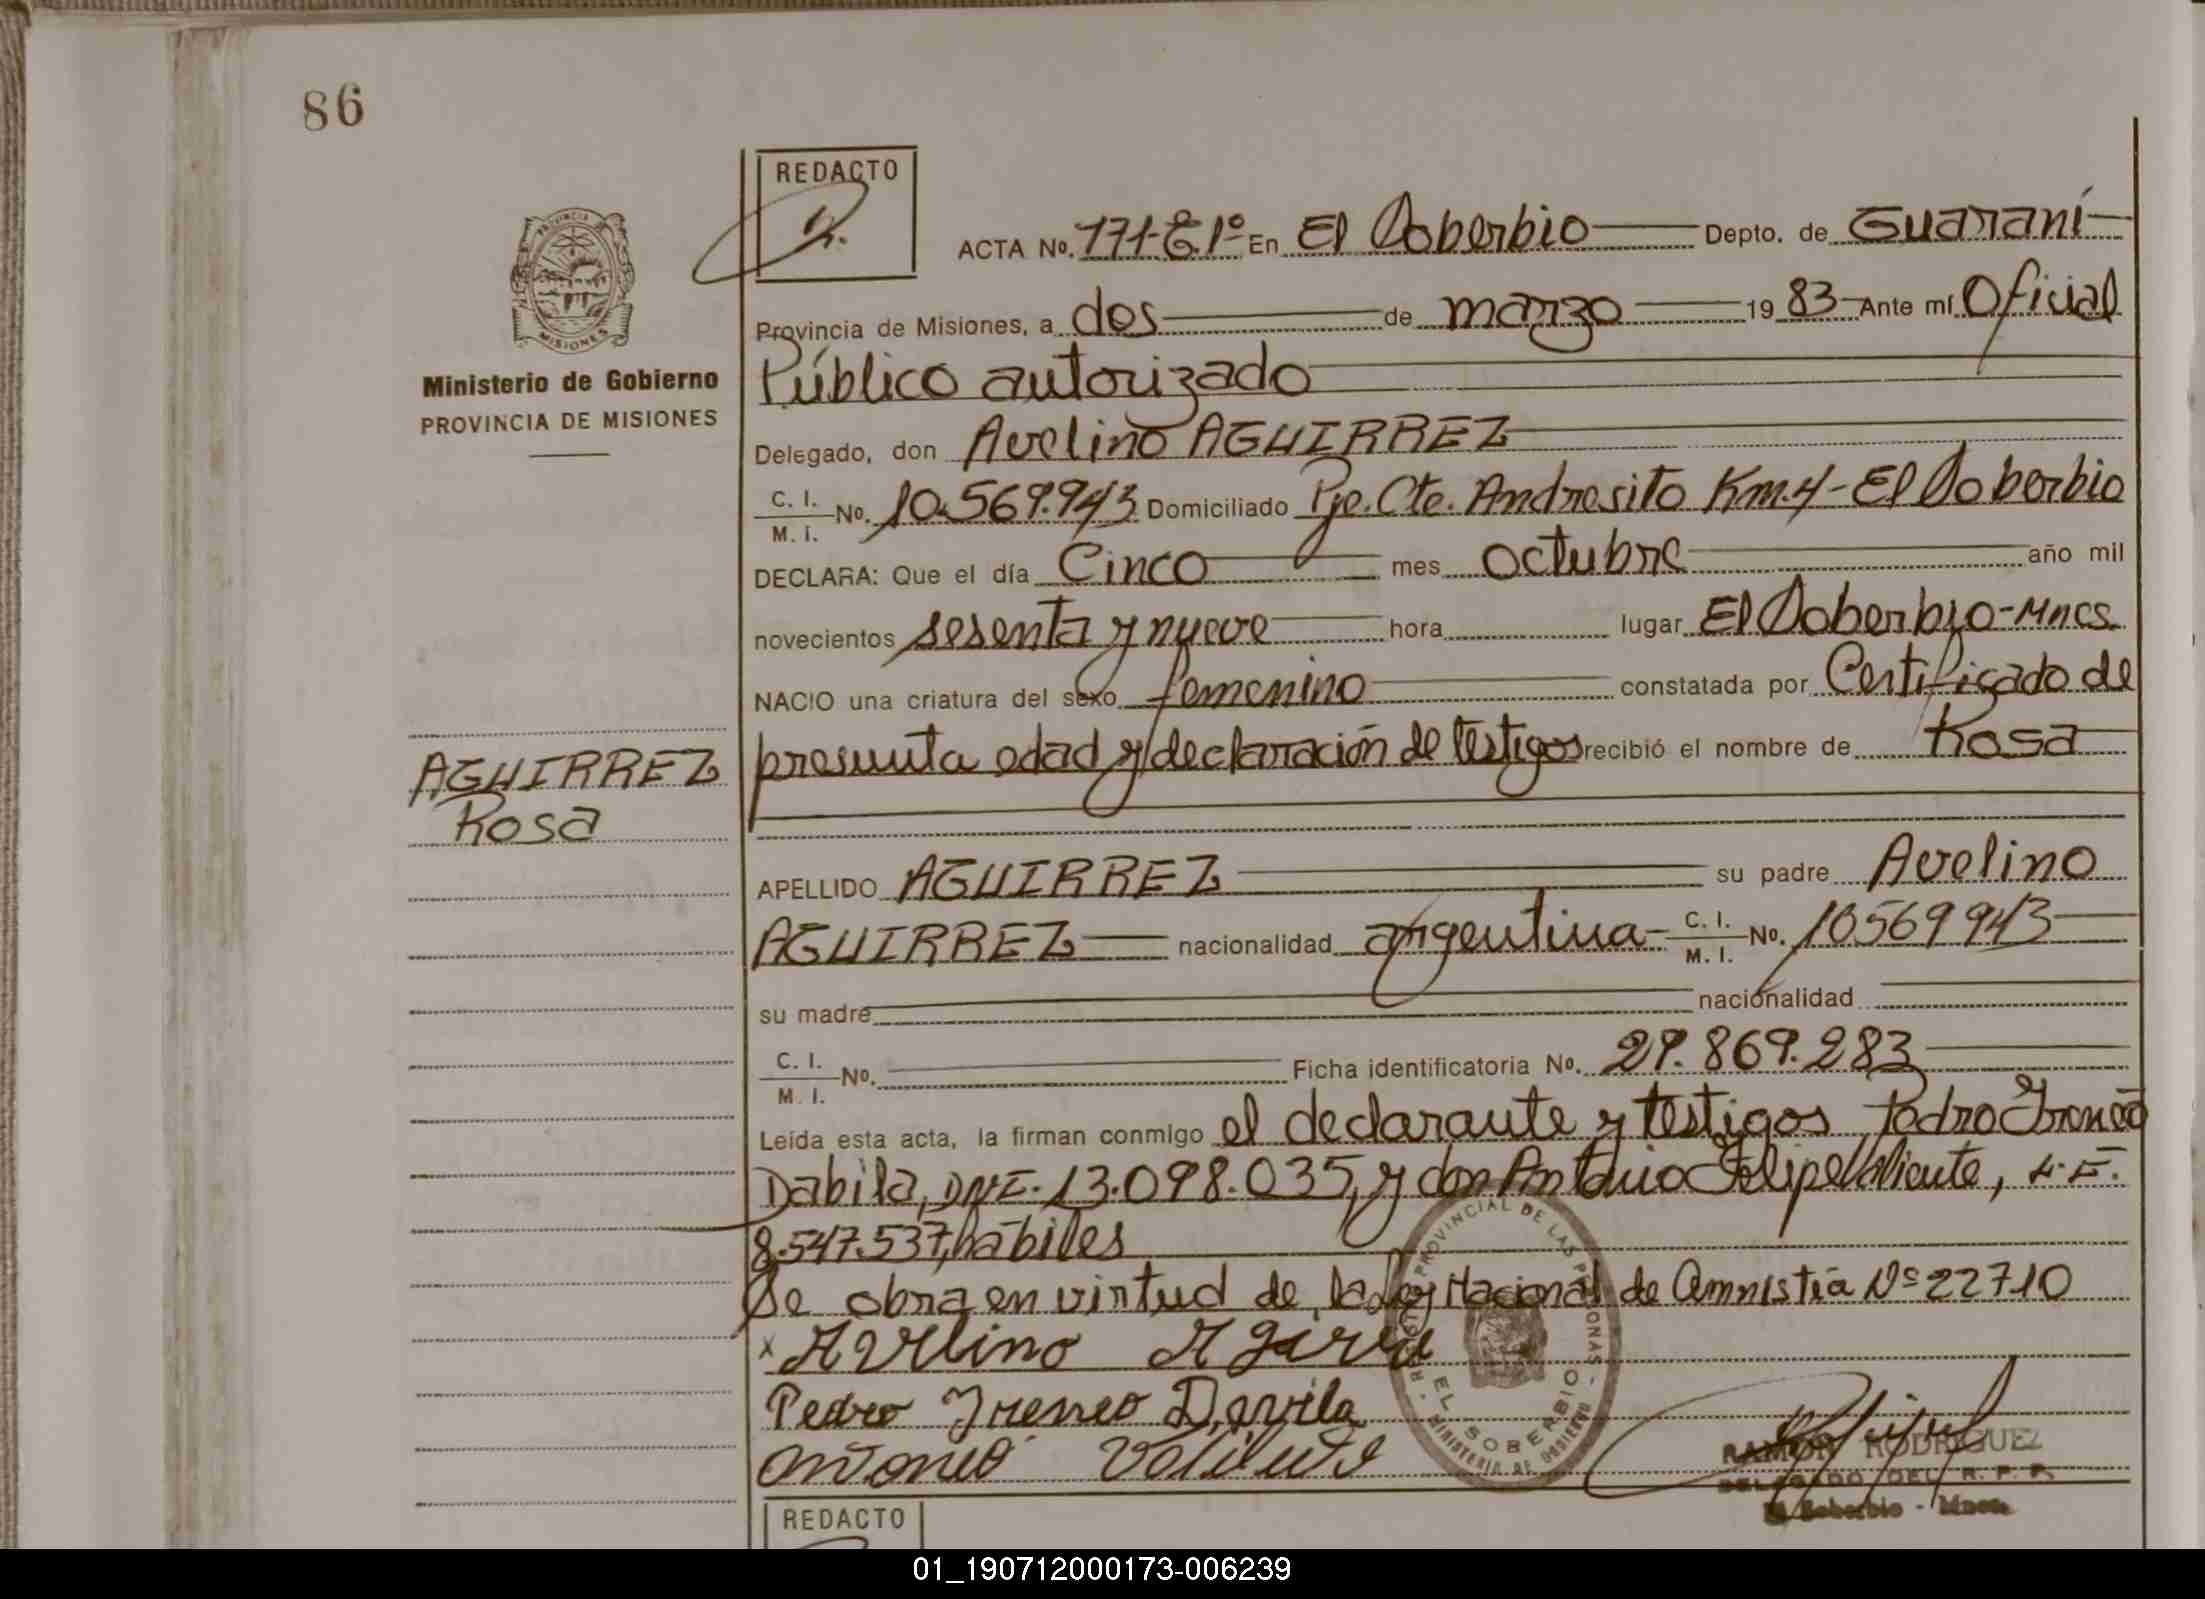 86
REDACTO
PROVINCIA DE
MISIONES
Ministerio de Gobierno
PROVINCIA DE MISIONES
ACTA Nº. 171-E.1º En El Soberbio Depto. de Guaraní
Provincia de Misiones, a dos de marzo 1983 Ante mí Oficial
Público autorizado
Delegado, don Avelino AGUIRREZ
C. I. M. I. Nº. 10.569.943 Domiciliado Pje. Cte. Andresito Km.4-El Soberbio
DECLARA: Que el día Cinco mes octubre año mil
novecientos sesenta y nueve hora lugar El Soberbio-Mnes.
NACIO una criatura del sexo femenino constatada por Certificado de
presunta edad y declaración de testigos recibió el nombre de Rosa
AGUIRREZ
Rosa
APELLIDO AGUIRREZ su padre Avelino
AGUIRREZ nacionalidad argentina C. I. M. I. Nº. 10569943
su madre nacionalidad
C. I. M. I. Nº. Ficha identificatoria Nº. 29.869.283
Leída esta acta, la firman conmigo el declarante y testigos Pedro Ireneo
Dabila, DNI. 13.098.035, y don Antonio Felipe Valiente, L.E.
8.547.537, hábiles
Se obra en virtud de la Ley Nacional de Amnistía Nº 22710
x Avelino Agirre
Pedro Ireneo Davila
Antonio Valiente
PROVINCIAL DE LAS PERSONAS
EL SOBERBIO
MINISTERIO DE GOBIERNO
RAMON RODRIGUEZ
DELEGADO DEL R. P. P.
El Soberbio - Mnes.
REDACTO
01_190712000173-006239